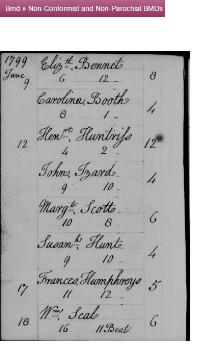 Bmd » Non-Conformist and Non-Parochial BMDs
1799
June 9 Elizth. Bennet 8
6 12
Caroline Booth 4
8 1
12 Henry. Huntriss 12
4 2
John Izard 4
9 10
Margt. Scott 6
10 8
Susanh. Hunt 4
9 10
17 Frances Humphroys 5
11 12
18 Wm. Seal 6
16 11 Best